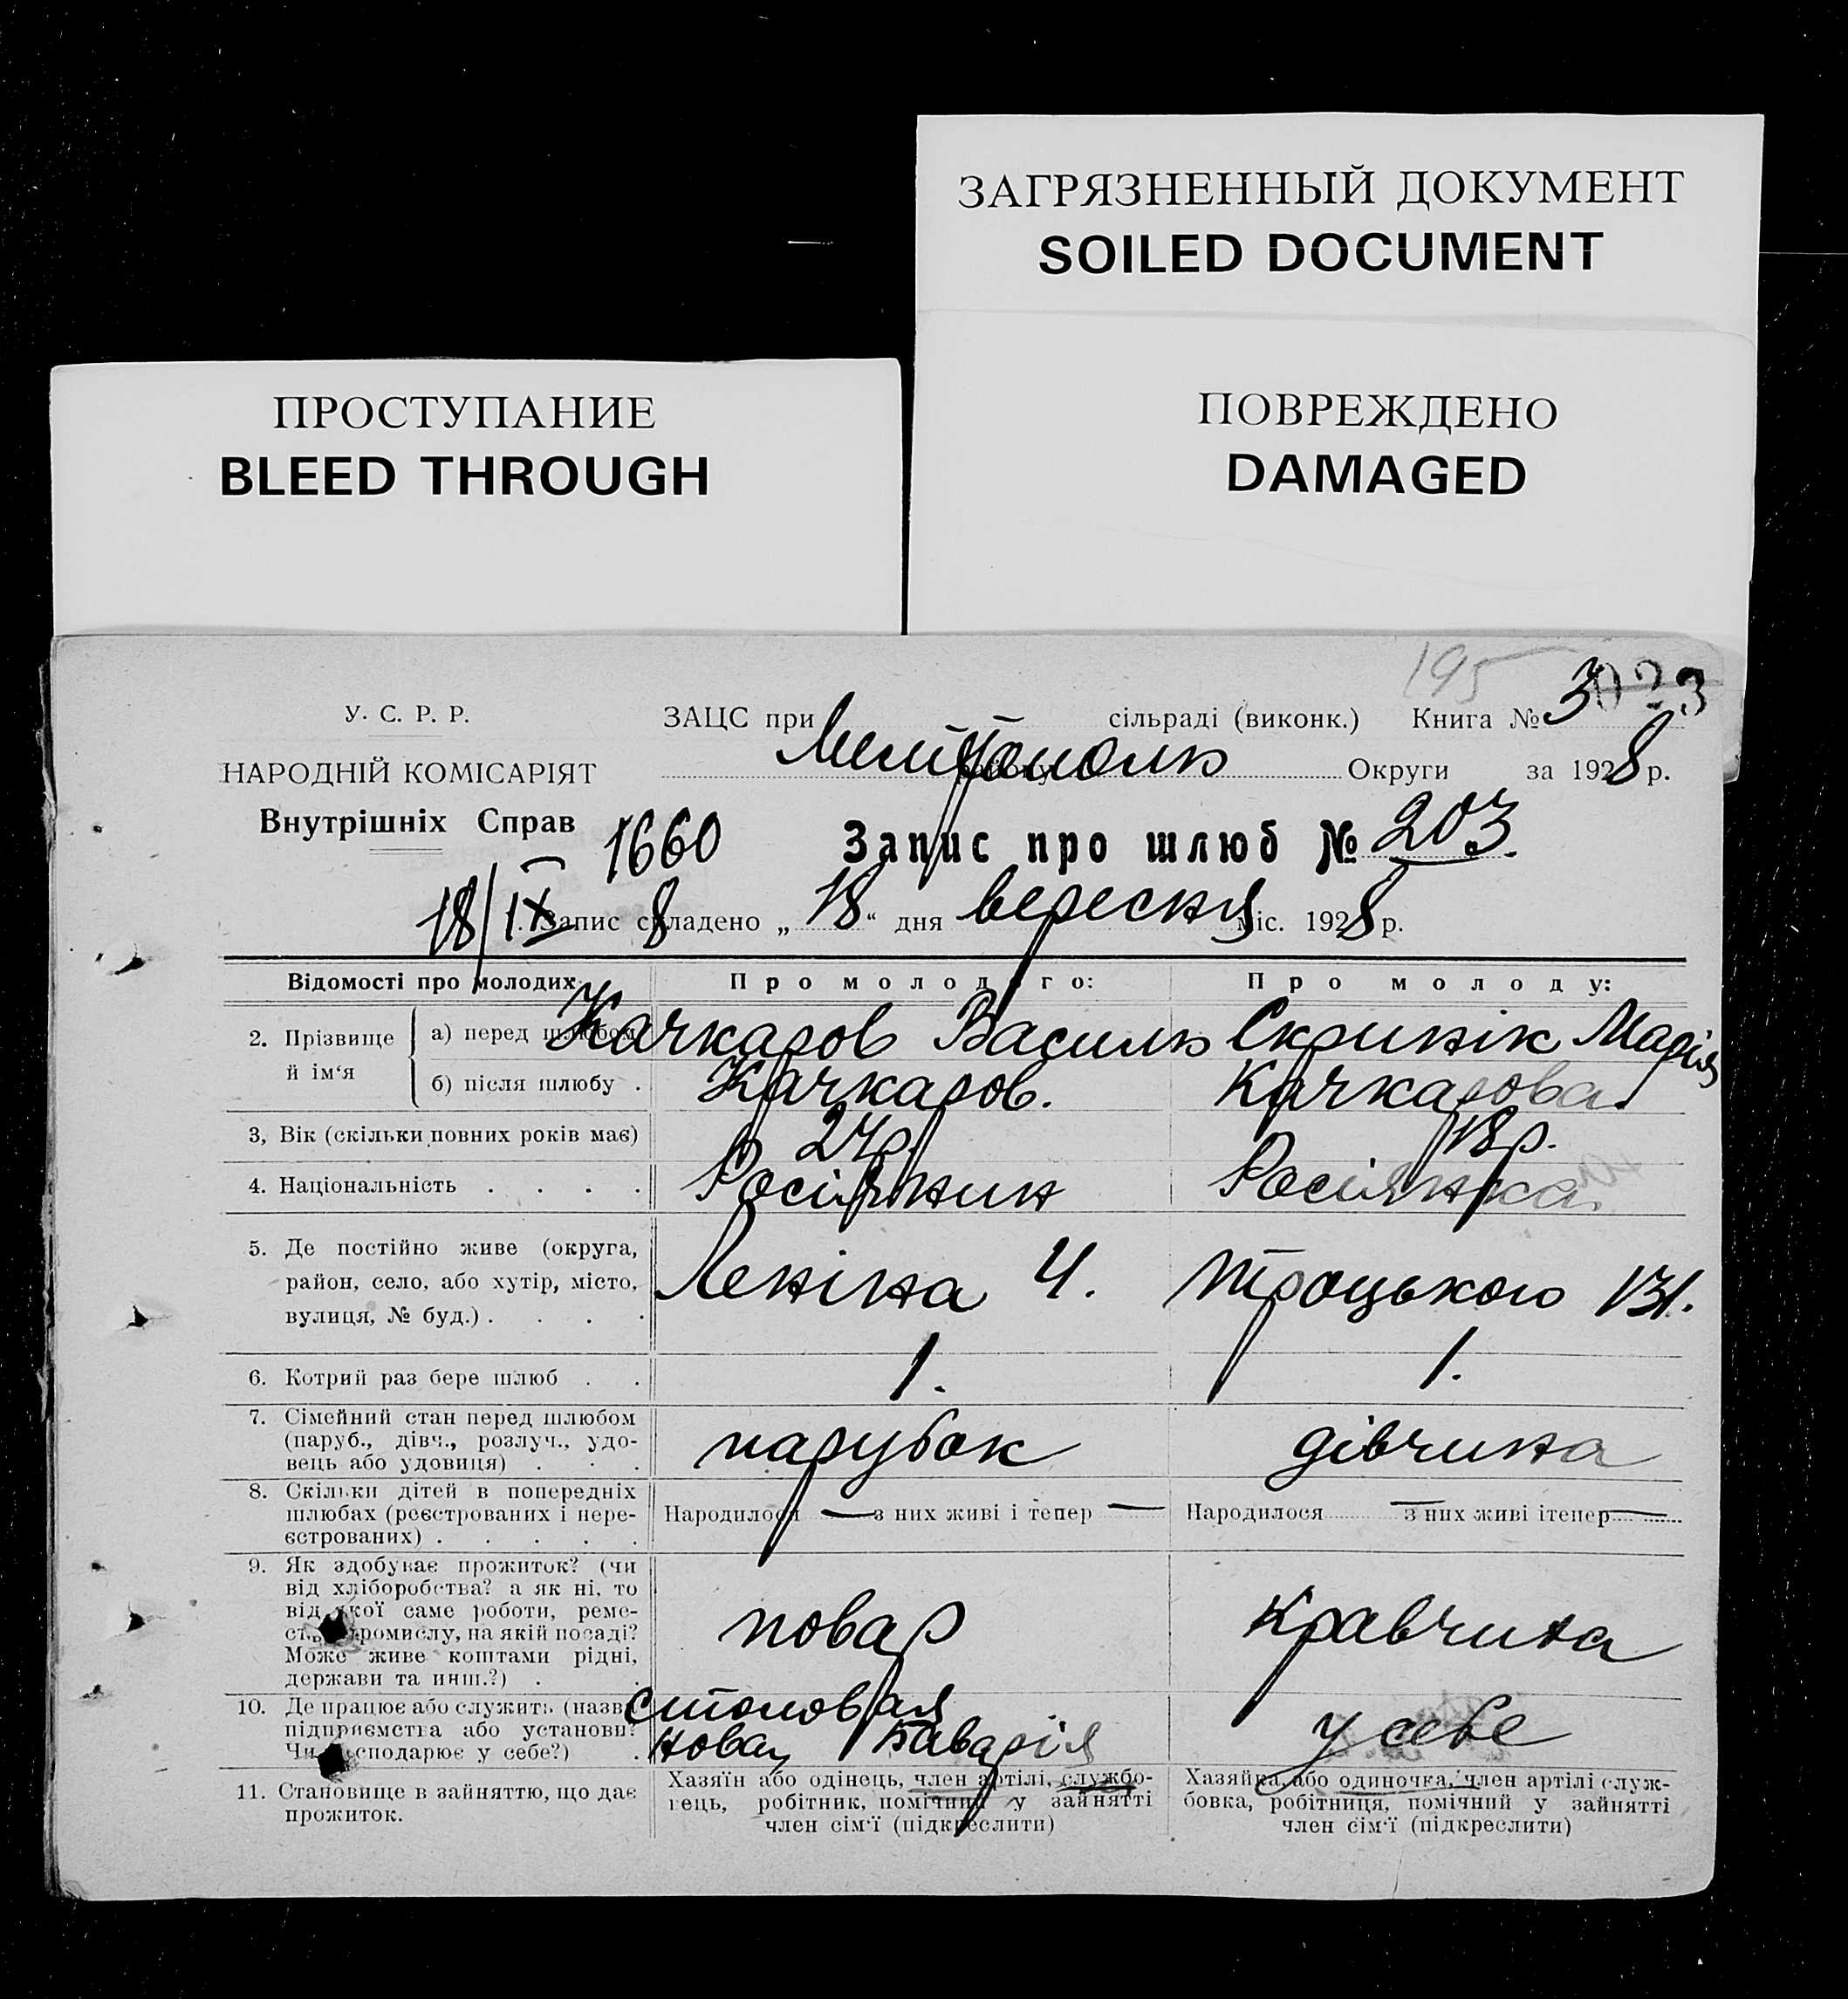 ЗАГРЯЗНЕННЫЙ ДОКУМЕНТ
SOILED DOCUMENT
ПРОСТУПАНИЕ
BLEED THROUGH
ПОВРЕЖДЕНО
DAMAGED
195
У. С. Р. Р.
НАРОДНІЙ КОМІСАРІЯТ
Внутрішніх Справ
ЗАЦС при сільраді (виконк.) Книга № 3
Мелітополь району Округи за 1928 р.
1660
Запис про шлюб № 203.
18/IX 8
1. Запис складено „ 18 “ дня вересня міс. 1928 р.
Відомості про молодих Про молодого: Про молоду:
2. Прізвище й ім‘я
а) перед шлюбом Качкаров Василь Скринік Марія
б) після шлюбу . Качкаров. Качкарова.
3, Вік (скільки повних років має) 24р. 18р.
4. Національність . . . . Росіянин Росіянка.
5. Де постійно живе (округа,
район, село, або хутір, місто,
вулиця, № буд.) . . . . Леніна 4. Троцького 131.
6. Котрий раз бере шлюб . . 1. 1.
7. Сімейний стан перед шлюбом
(паруб., дівч., розлуч., удо-
вець або удовиця) . . . парубок дівчина
8. Скільки дітей в попередніх
шлюбах (реєстрованих і нере-
єстрованих) . . . . . Народилося — з них живі і тепер — Народилося — з них живі і тепер —
9. Як здобуває прожиток? (чи
від хліборобства? а як ні, то
від якої саме роботи, реме-
ства, промислу, на якій посаді?
Може живе коштами рідні,
держави та инш.?) . . повар кравчиха
10. Де працює або служить (назва
підприємства або установи?
Чи господарює у себе?) . столовая
Нова Баварія у себе
11. Становище в зайняттю, що дає
прожиток.
Хазяїн або одінець, член артілі, службо-
вець, робітник, помічний у зайнятті
член сім‘ї (підкреслити)
Хазяйка, або одиночка, член артілі служ-
бовка, робітниця, помічний у зайнятті
член сім‘ї (підкреслити)